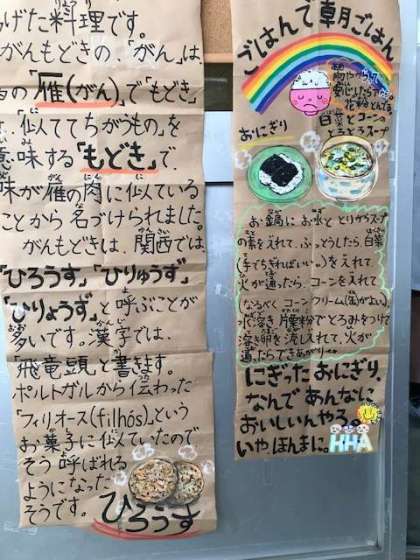 あげた料理です。
がんもどきの、「がん」は、
「雁(がん)」で「もどき」
、似ててちがうもの」を
意味する「もどき」で、
味が雁の肉に似ている
ことから名づけられました。
がんもどきは、関西では、
「ひろうす」「ひりゅうず」
「ひりょうず」と呼ぶことが
多いです。漢字では、
「飛竜頭」と書きます。
ポルトガルから伝わった
「フィリオース(filhós)」という
お菓子に似ていたので
そう呼ばれる
ようになった
そうです。
ひろうす
ごはんで朝ごはん
花粉とんでる
白菜とコーンの
とろとろスープ
おにぎり
お鍋にお水ととりがらスープ
の素を入れて、ふっとうしたら、白菜
(手でちぎればいい。)を入れて
火が通ったら、コーンを入れて
(なるべくコーンクリーム(缶)がよい)。
水溶き片栗粉でとろみをつけて
溶き卵を流し入れて、火が
通ったらできあがり。
にぎったおにぎり、
なんであんなに
おいしいんやろ。
いやほんまに。
HHA